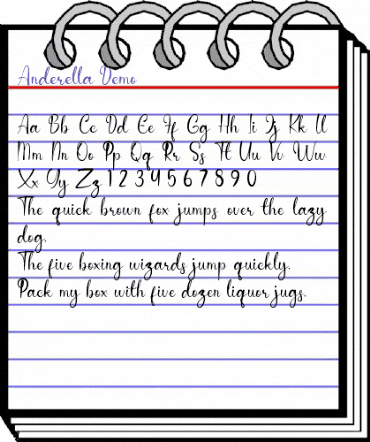 Anderella Demo
Aa Bb Cc Dd Ee Ff Gg Hh Ii Jj Kk Ll
Mm Nn Oo Pp Qq Rr Ss Tt Uu Vv Ww
Xx Yy Zz 1 2 3 4 5 6 7 8 9 0
The quick brown fox jumps over the lazy
dog.
The five boxing wizards jump quickly.
Pack my box with five dozen liquor jugs.